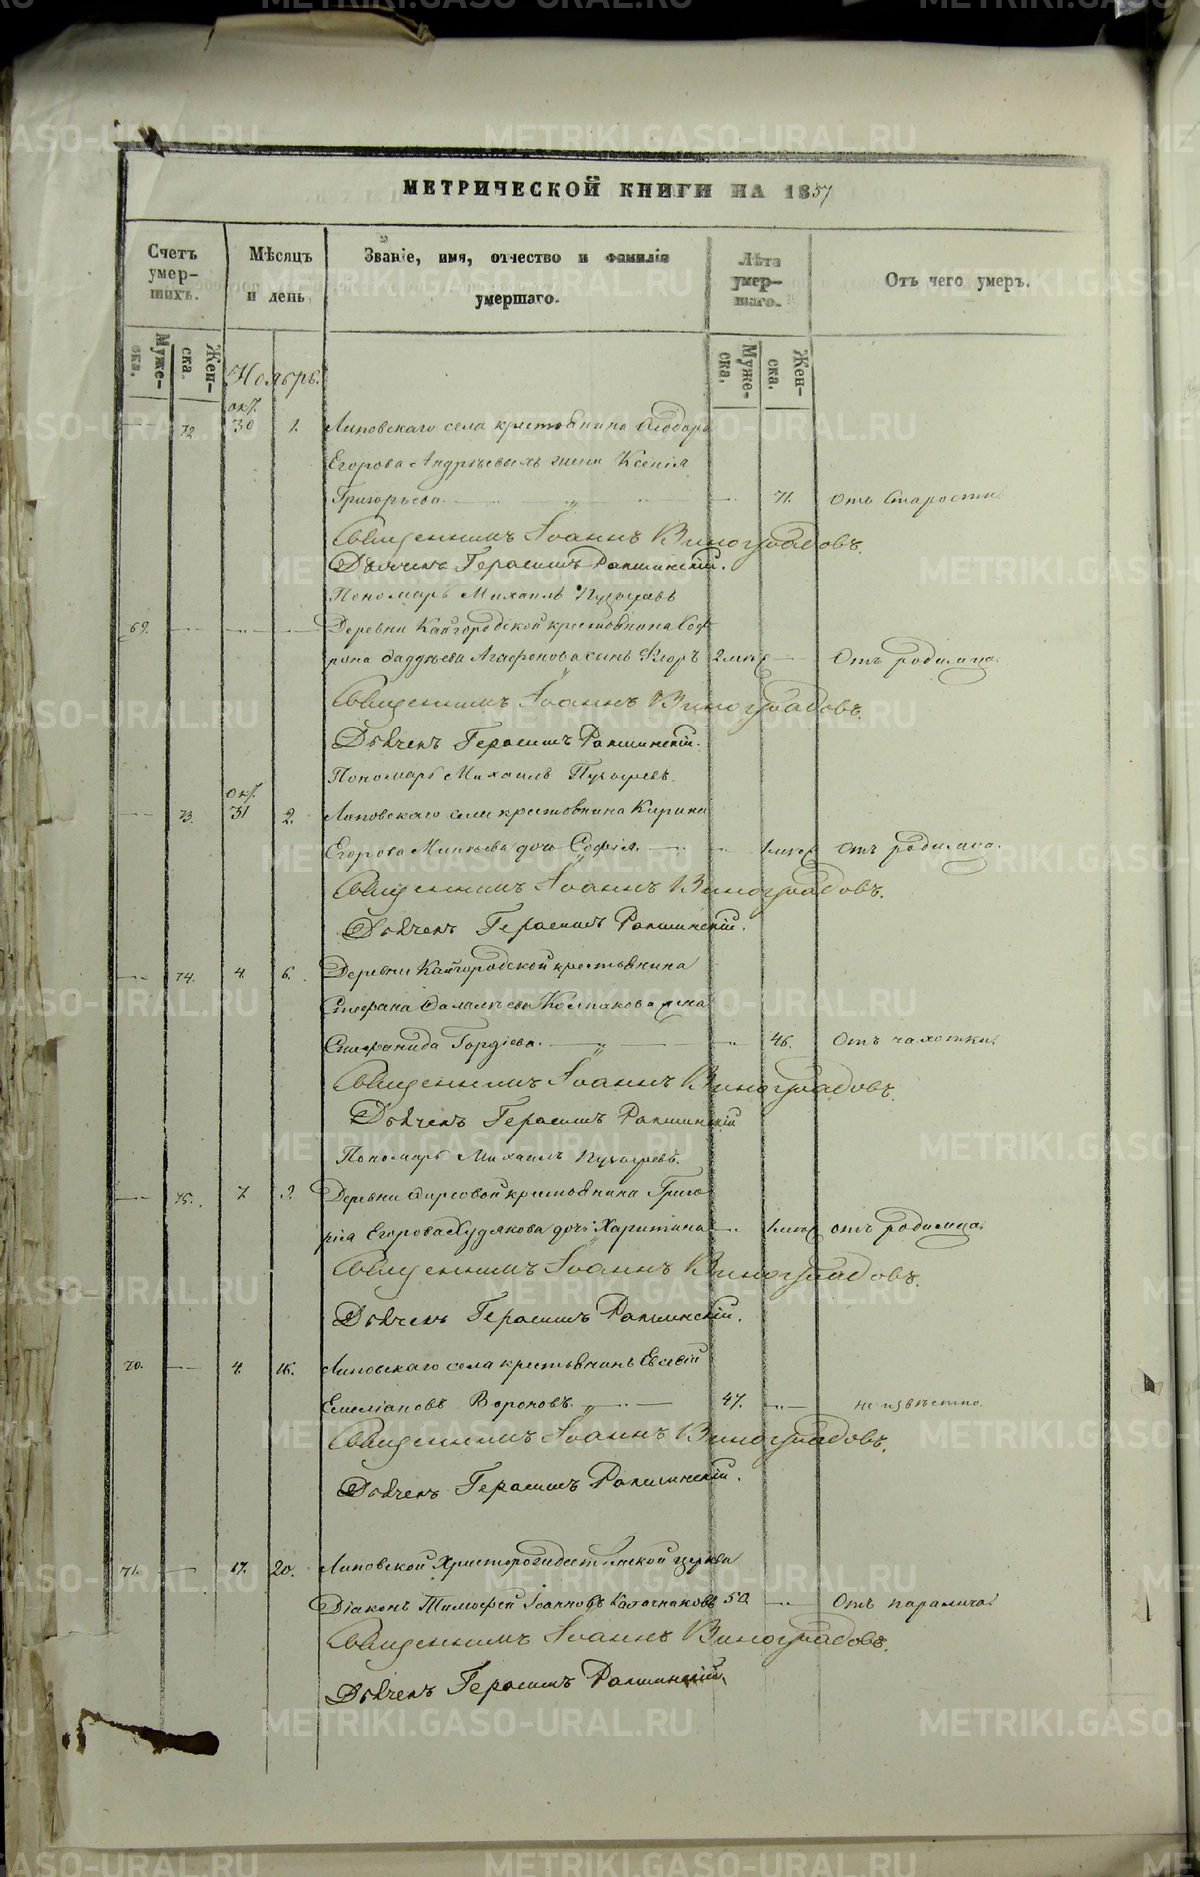 МЕТРИЧЕСКОЙ КНИГИ НА 1857
Счетъ умер-шихъ.
Мѣсяцъ и день.
Званіе, имя, отчество и фамилія умершаго.
Лѣта умер-шаго.
Отъ чего умеръ.
Муже-ска.
Жен-ска.
Муже-ска.
Жен-ска.
Ноябрь.
окт.
72 30 1. Липовскаго села крестьянина Ѳеодора
Егорова Андреевыхъ жена Ксенія
Григорьева. 71. отъ старости.
Священникъ Іоаннъ Виноградовъ.
Дьячекъ Герасимъ Рапшинскій.
Пономарь Михаилъ
69. Деревни Кайгородской крестьянина Соф-
рона Фаддѣева Агафонова сынъ Флоръ 2 мѣс. Отъ родимца.
Священникъ Іоаннъ Виноградовъ.
Дьячекъ Герасимъ Рапшинскій.
Пономарь Михаилъ
окт.
73. 31 2. Липовскаго села крестьянина Кирила
Егорова Минѣева дочь Софія. 1 мѣс. отъ родимца.
Священникъ Іоаннъ Виноградовъ.
Дьячекъ Герасимъ Рапшинскій.
74. 4. 6. Деревни Кайгородской крестьянина
Стефана Колпакова жена
Стефанида Гордіева. 46. Отъ чахотки.
Священникъ Іоаннъ Виноградовъ.
Дьячекъ Герасимъ Рапшинскій
Пономарь Михаилъ
75. 7. 9. Деревни Фирсовой крестьянина Григо-
рія Егорова Худякова дочь Харитина 1 мѣс. отъ родимца.
Священникъ Іоаннъ Виноградовъ.
Дьячекъ Герасимъ Рапшинскій.
70. 4. 16. Липовскаго села крестьянинъ Евсевій
Емеліановъ Вороновъ. 47. не извѣстно.
Священникъ Іоаннъ Виноградовъ.
Дьячекъ Герасимъ Рапшинскій.
71. 17. 20. Липовской Христорождественской церкви
Діаконъ Тимофей Іоанновъ 50 Отъ паралича.
Священникъ Іоаннъ Виноградовъ.
Дьячекъ Герасимъ Рапшинскій.
METRIKI.GASO-URAL.RU